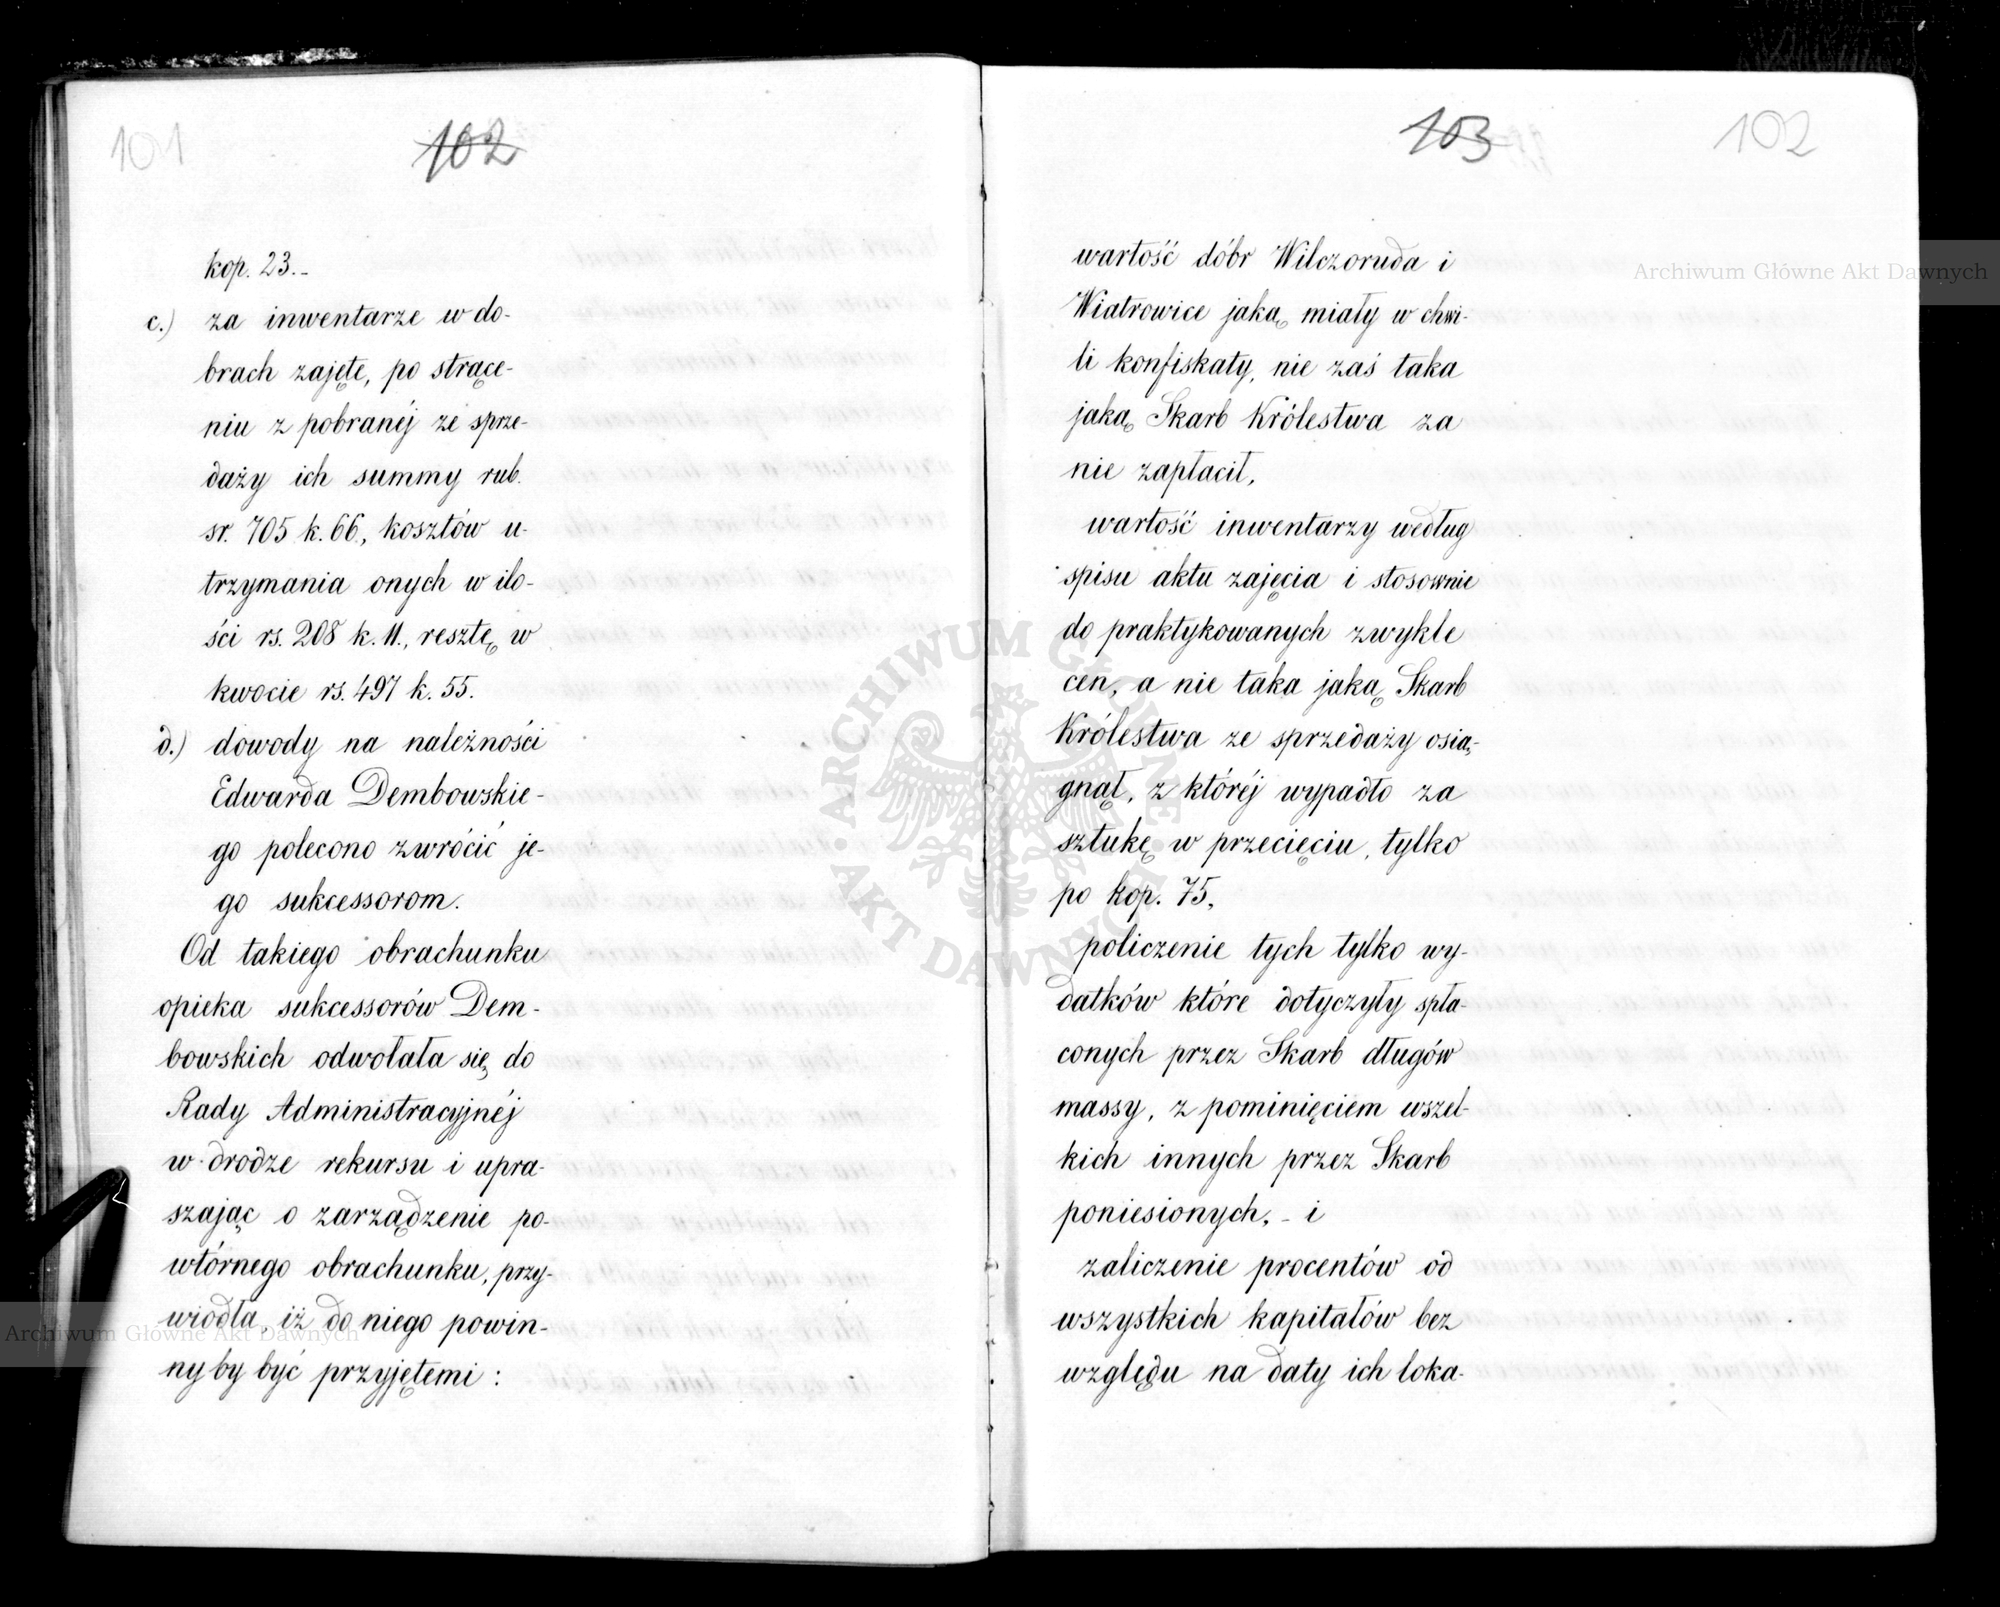 101
102
kop. 23.-
c.) za inwentarze w do-
brach zajęte, po strące-
niu z pobranéj ze sprze-
daży ich summy rub.
sr. 705 k. 66., kosztów u-
trzymania onych w ilo-
ści rs. 208 k. 11., resztę w
kwocie rs. 497 k. 55.
d.) dowody na należności
Edwarda Dembowskie-
go polecono zwrócić je-
go sukcessorom.
Od takiego obrachunku
opieka sukcessorów Dem-
bowskich odwołała się do
Rady Administracyjnéj
w drodze rekursu i upra-
szając o zarządzenie po-
wtórnego obrachunku, przy-
wiodła, iż do niego powin-
ny by być przyjętemi :
103
102
wartość dóbr Wilczoruda i
Wiatrowice jaką miały w chwi-
li konfiskaty, nie zaś taka
jaką Skarb Królestwa za
nie zapłacił,
wartość inwentarzy według
spisu aktu zajęcia i stosownie
do praktykowanych zwykle
cen, a nie taka jaką Skarb
Królestwa ze sprzedaży osią-
gnął, z któréj wypadło za
sztukę w przecięciu, tylko
po kop. 75,
policzenie tych tylko wy-
datków które dotyczyły spła-
conych przez Skarb długów
massy, z pominięciem wszel-
kich innych przez Skarb
poniesionych, - i
zaliczenie procentów od
wszystkich kapitałów bez
względu na daty ich loka-
Archiwum Główne Akt Dawnych
Archiwum Główne Akt Dawnych
ARCHIWUM GŁÓWNE AKT DAWNYCH